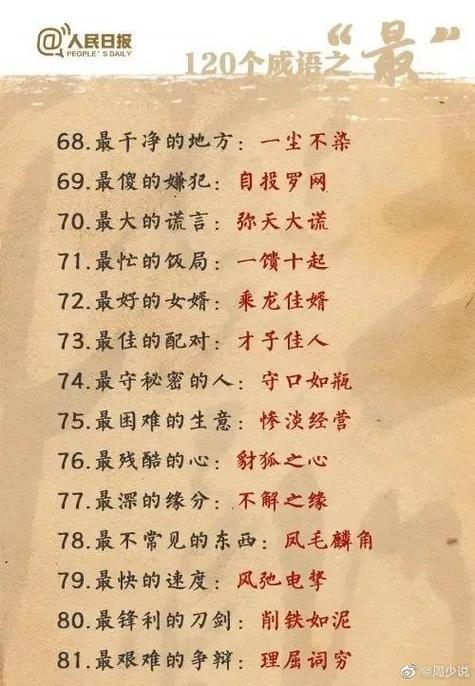 @人民日报
PEOPLE'S DAILY
120个成语之“最”
68.最干净的地方：一尘不染
69.最傻的嫌犯：自投罗网
70.最大的谎言：弥天大谎
71.最忙的饭局：一馈十起
72.最好的女婿：乘龙佳婿
73.最佳的配对：才子佳人
74.最守秘密的人：守口如瓶
75.最困难的生意：惨淡经营
76.最残酷的心：豺狐之心
77.最深的缘分：不解之缘
78.最不常见的东西：凤毛麟角
79.最快的速度：风弛电掣
80.最锋利的刀剑：削铁如泥
81.最艰难的争辩：理屈词穷
@周少说